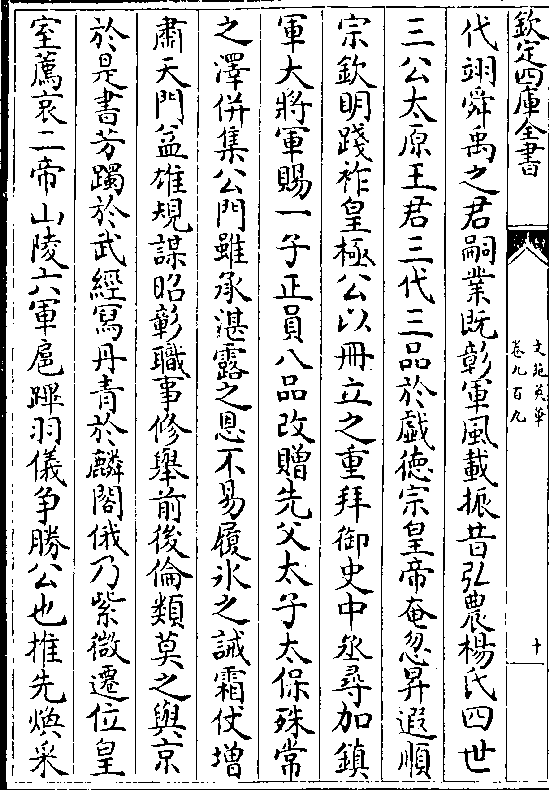 欽定四庫全書
文苑英華
卷九百九
十
代翊舜禹之君嗣業既彰軍風載振昔弘農楊氏四世
三公太原王君三代三品於戲德宗皇帝奄忽昇遐順
宗欽明踐祚皇極公以冊立之重拜御史中丞尋加鎮
軍大將軍賜一子正員八品改贈先父太子太保殊常
之澤併集公門雖承湛露之恩不易履氷之誡霜仗增
肅天門益雄規謀昭彰職事修舉前後倫類莫之與京
於是書芳躅於武經寫丹青於麟閣俄乃紫微遷位皇
室薦哀二帝山陵六軍扈蹕羽儀爭勝公也推先煥采